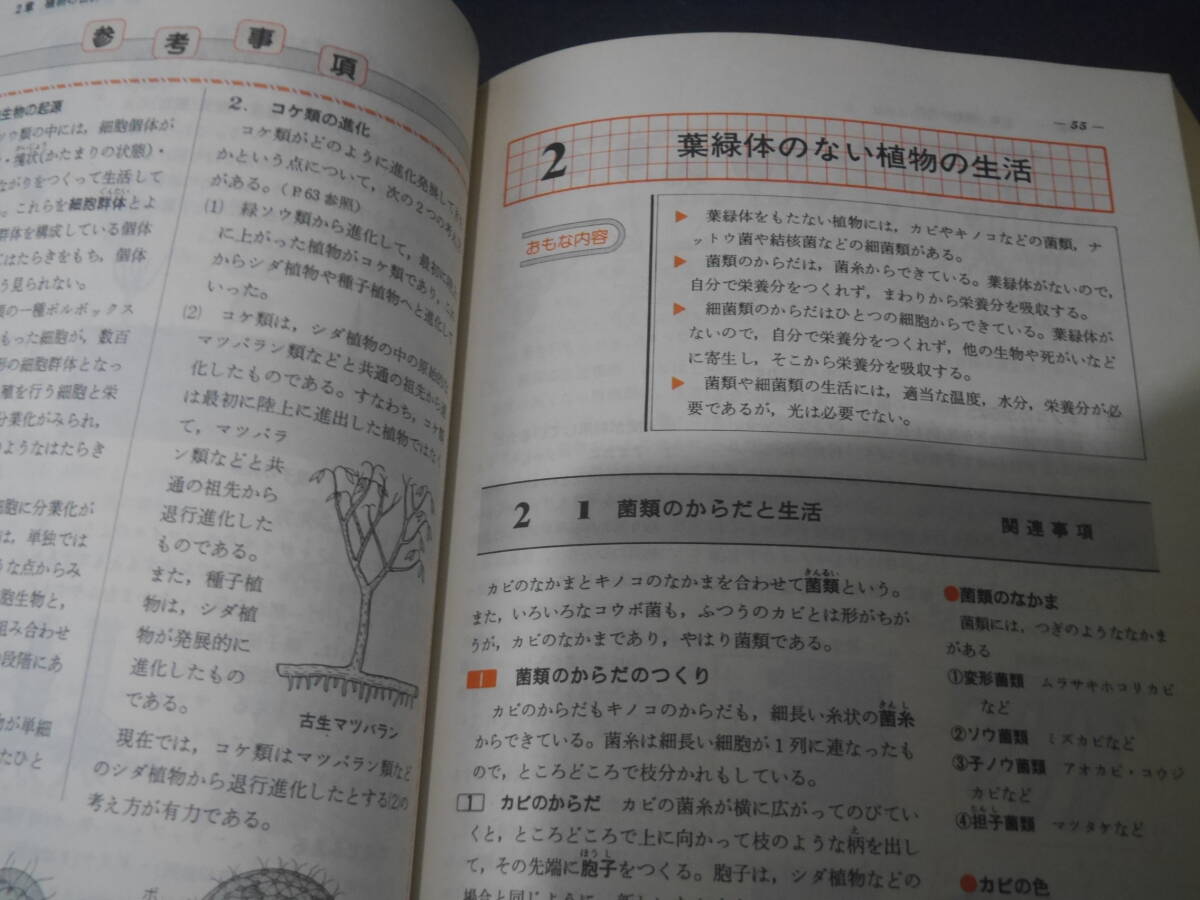 2章 植物の
参考事項
生物の起源
ソウ類の中には，細胞個体が
・塊状(かたまりの状態)・
ながりをつくって生活して
。これらを細胞群体とよ
群体を構成している個体
てはたらきをもち，個体
う見られない。
類の一種ボルボックス
もった細胞が，数百
形の細胞群体となっ
殖を行う細胞と栄
分業化がみられ，
のようなはたらき
細胞に分業化が
は，単独では
うな点からみ
胞生物と，
組み合わせ
の段階にあ
物が単細
たひと
2. コケ類の進化
コケ類がどのように進化発展して
かという点について，次の2つの考え
がある。(P.63参照)
(1) 緑ソウ類から進化して，最初に陸
に上がった植物がコケ類であり，
からシダ植物や種子植物へと進化して
いった。
(2) コケ類は，シダ植物の中の原始的な
マツバラン類などと共通の祖先から退
化したものである。すなわち，コケ類
は最初に陸上に進出した植物ではなく
て，マツバラ
ン類などと共
通の祖先から
退行進化した
ものである。
また，種子植
物は，シダ植
物が発展的に
進化したもの
である。
古生マツバラン
現在では，コケ類はマツバラン類など
のシダ植物から退行進化したとする(2)の
考え方が有力である。
ボ
— 55 —
2 葉緑体のない植物の生活
おもな内容
▶ 葉緑体をもたない植物には，カビやキノコなどの菌類，ナ
ットウ菌や結核菌などの細菌類がある。
▶ 菌類のからだは，菌糸からできている。葉緑体がないので，
自分で栄養分をつくれず，まわりから栄養分を吸収する。
▶ 細菌類のからだはひとつの細胞からできている。葉緑体が
ないので，自分で栄養分をつくれず，他の生物や死がいなど
に寄生し，そこから栄養分を吸収する。
▶ 菌類や細菌類の生活には，適当な温度，水分，栄養分が必
要であるが，光は必要でない。
2 1 菌類のからだと生活
関連事項
カビのなかまとキノコのなかまを合わせて菌類という。
また，いろいろなコウボ菌も，ふつうのカビとは形がちが
うが，カビのなかまであり，やはり菌類である。
1 菌類のからだのつくり
カビのからだもキノコのからだも，細長い糸状の菌糸
からできている。菌糸は細長い細胞が1列に連なったも
ので，ところどころで枝分かれもしている。
1 カビのからだ カビの菌糸が横に広がってのびてい
くと，ところどころで上に向かって枝のような柄を出し
て，その先端に胞子をつくる。胞子は，シダ植物などの
場合と同じように，新し
●菌類のなかま
菌類には，つぎのようななかま
がある
①変形菌類 ムラサキホコリカビ
など
②ソウ菌類 ミズカビなど
③子ノウ菌類 アオカビ・コウジ
カビなど
④担子菌類 マツタケなど
●カビの色